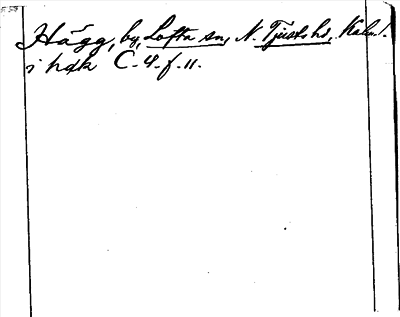 Hägg, by, Lofta sn, N. Tjusts hd, Kalm. l.
i hdk C. 4. f. 11.